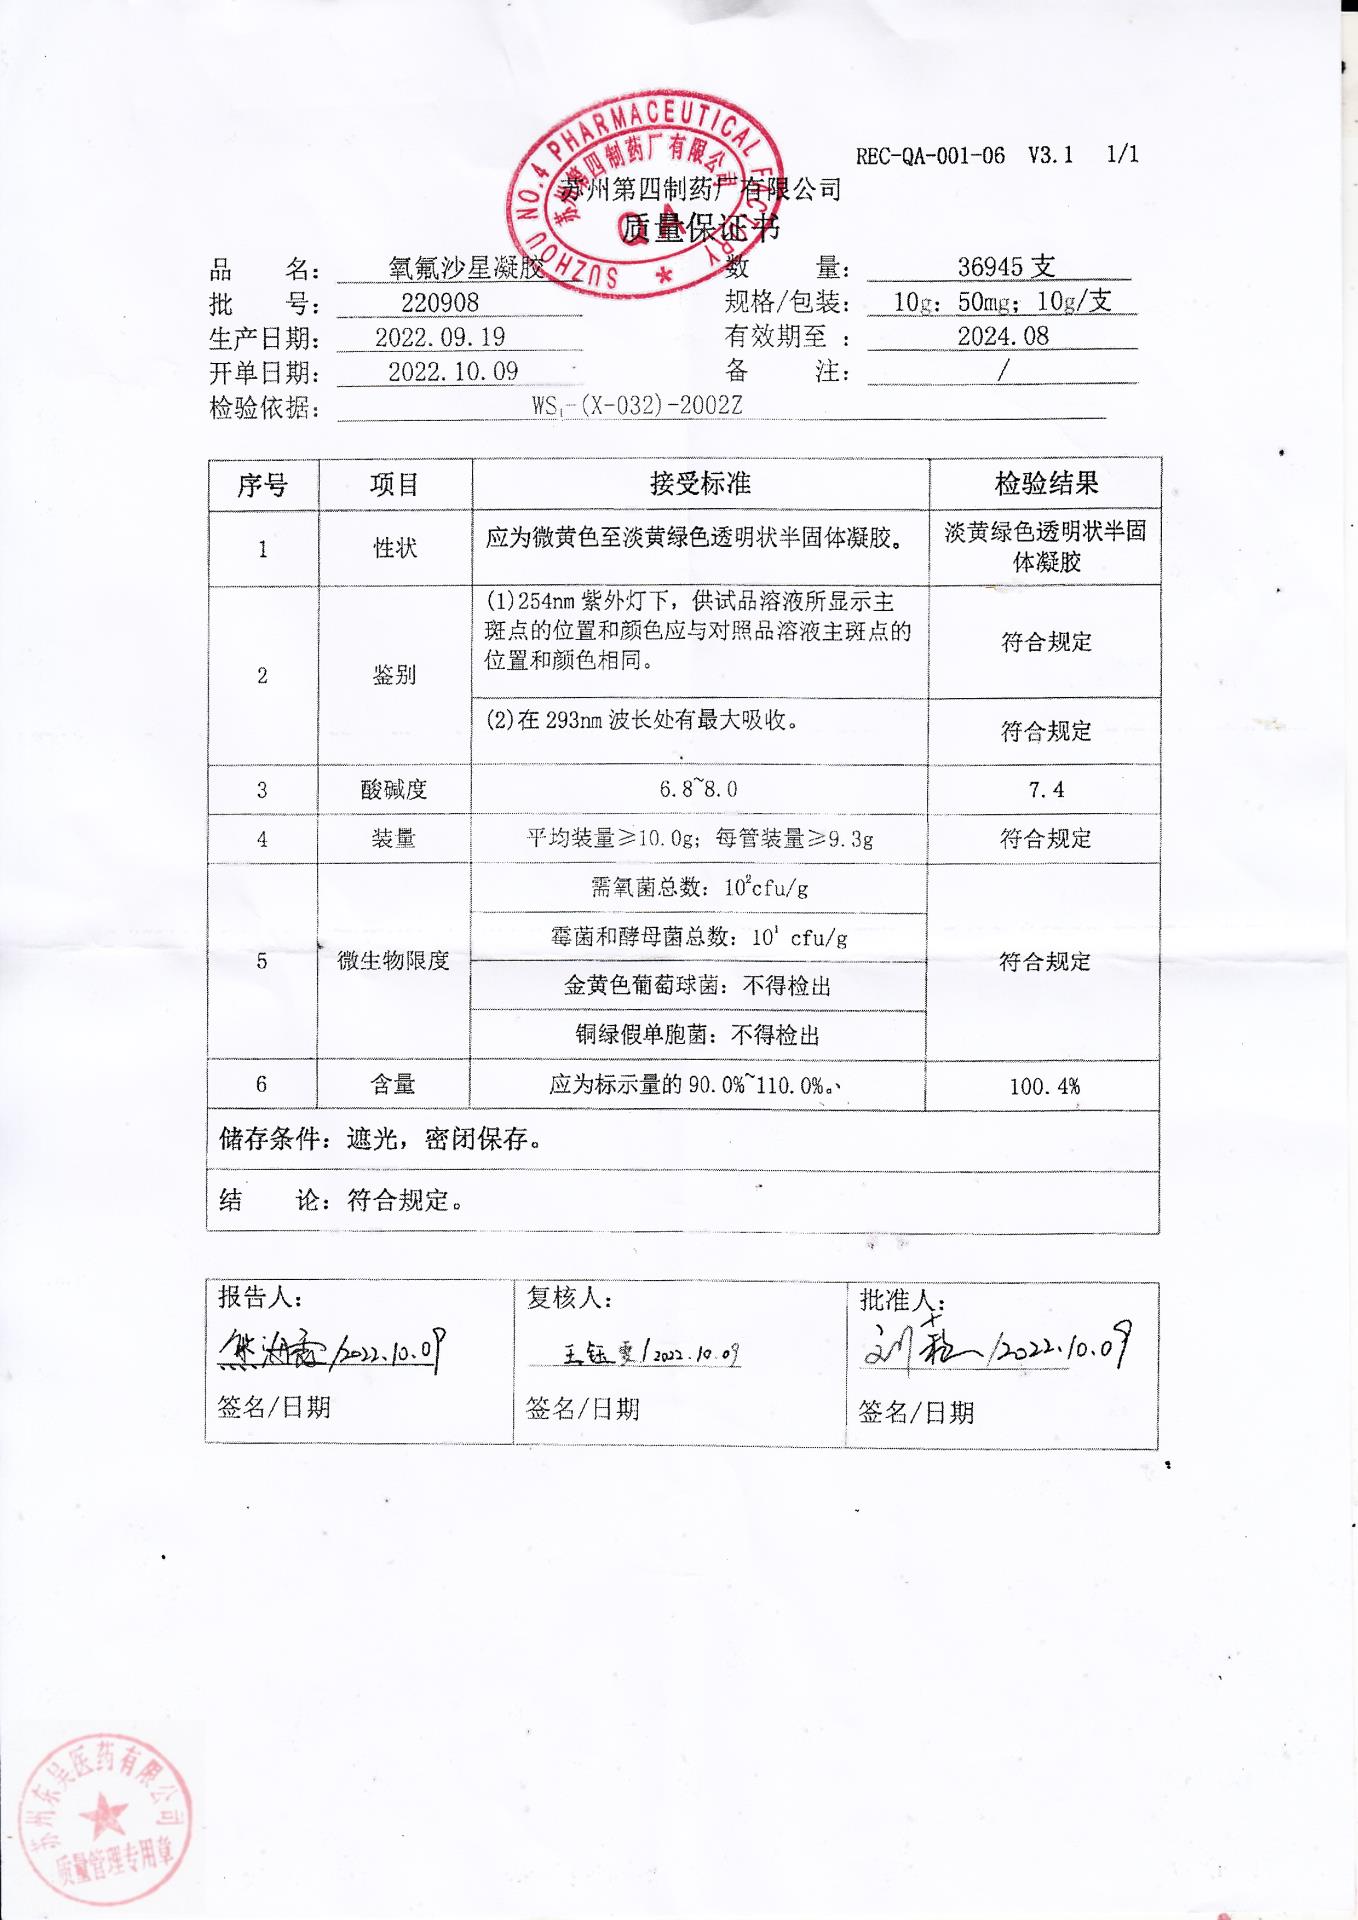 REC-QA-001-06 V3.1 1/1
SUZHOU NO.4 PHARMACEUTICAL FACTORY
苏州第四制药厂有限公司
QA
苏州第四制药厂有限公司
质量保证书
品 名: 氧氟沙星凝胶 数 量: 36945支
批 号: 220908 规格/包装: 10g: 50mg; 10g/支
生产日期: 2022.09.19 有效期至 : 2024.08
开单日期: 2022.10.09 备 注: /
检验依据: WS₁-(X-032)-2002Z
序号 项目 接受标准 检验结果
1 性状 应为微黄色至淡黄绿色透明状半固体凝胶。 淡黄绿色透明状半固
体凝胶
2 鉴别 (1)254nm 紫外灯下，供试品溶液所显示主
斑点的位置和颜色应与对照品溶液主斑点的
位置和颜色相同。 符合规定
(2)在 293nm 波长处有最大吸收。 符合规定
3 酸碱度 6.8~8.0 7.4
4 装量 平均装量≥10.0g; 每管装量≥9.3g 符合规定
5 微生物限度 需氧菌总数: 10²cfu/g 符合规定
霉菌和酵母菌总数: 10¹ cfu/g
金黄色葡萄球菌: 不得检出
铜绿假单胞菌: 不得检出
6 含量 应为标示量的 90.0%~110.0%。 100.4%
储存条件: 遮光, 密闭保存。
结 论: 符合规定。
报告人: 复核人: 批准人:
/2022.10.09 王钰雯/2022.10.09 /2022.10.09
签名/日期 签名/日期 签名/日期
苏州东吴医药有限公司
质量管理专用章